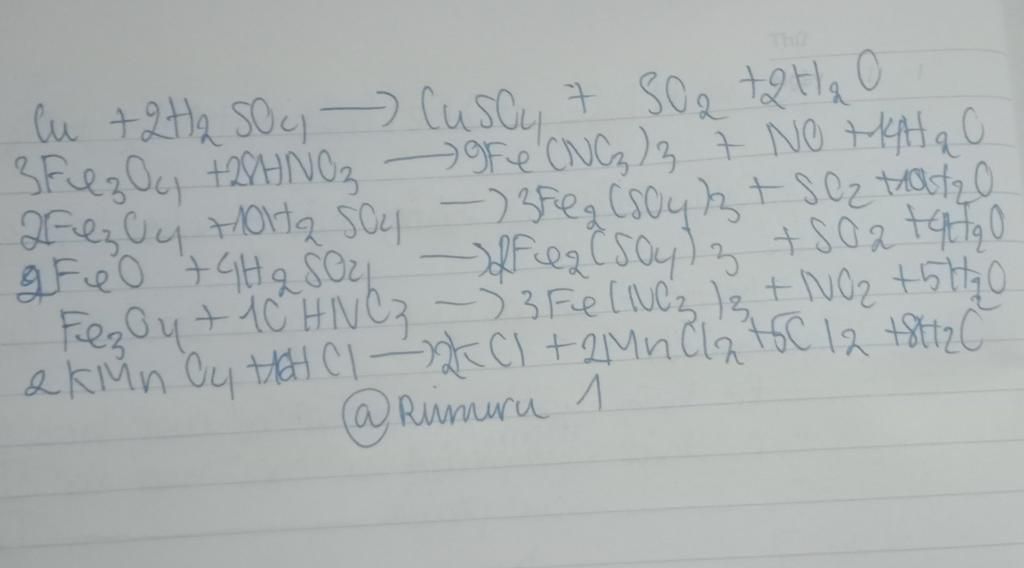 Cu + 2H2SO4 → CuSO4 + SO2 + 2H2O
3Fe3O4 + 28HNO3 → 9Fe(NO3)3 + NO + 14H2O
2Fe3O4 + 10H2SO4 → 3Fe2(SO4)3 + SO2 + 10H2O
2FeO + 4H2SO4 → Fe2(SO4)3 + SO2 + 4H2O
Fe3O4 + 10HNO3 → 3Fe(NO3)3 + NO2 + 5H2O
2KMnO4 + 16HCl → 2KCl + 2MnCl2 + 5Cl2 + 8H2O
@Rimuru 1